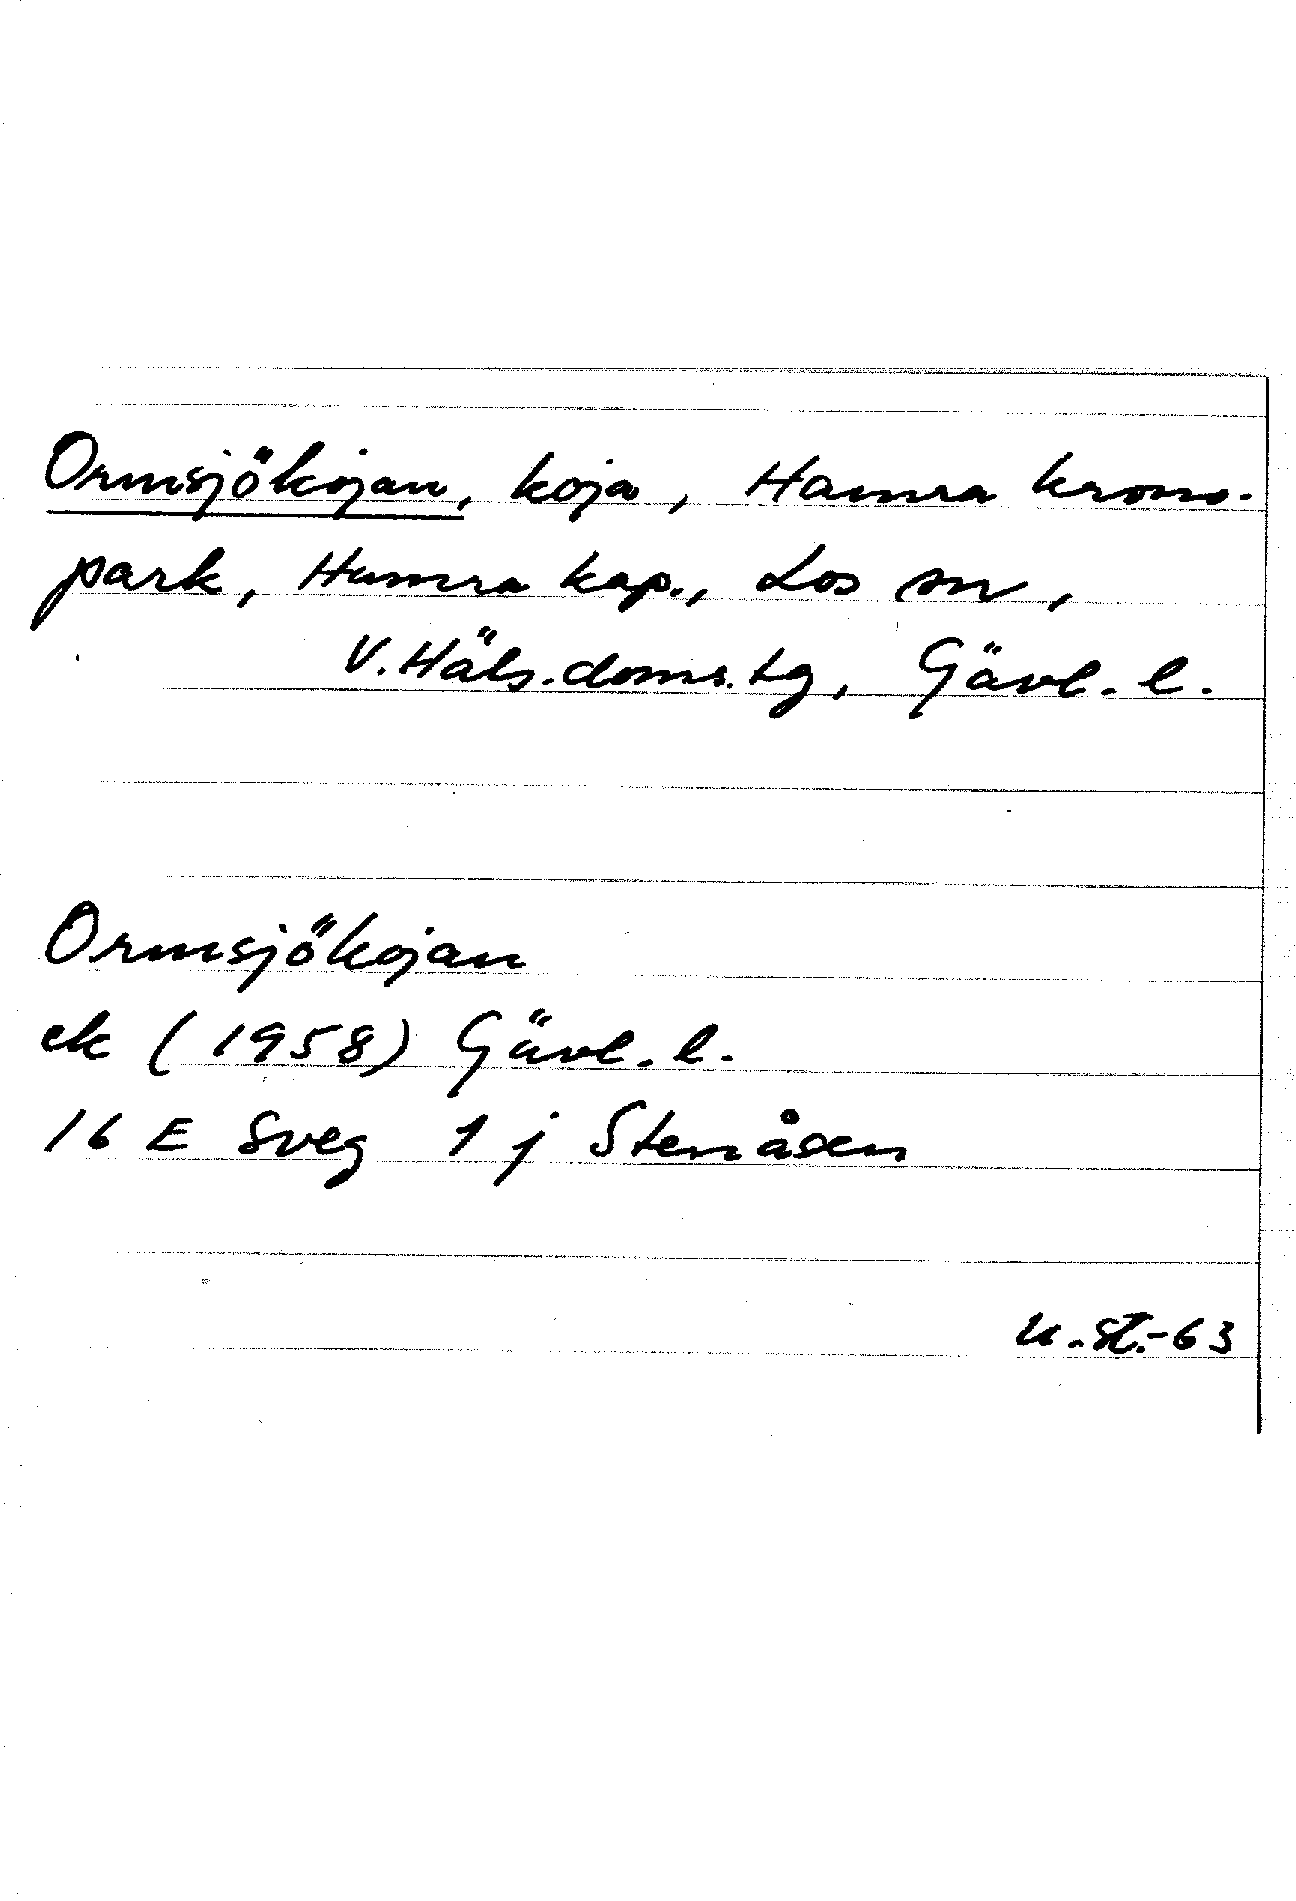 Ormsjökojan, koja, Hamra krono-
park, Hamra kap., Los sn,
V. Häls. doms. tg, Gävl. l.
Ormsjökojan
ek (1958) Gävl. l.
16 E Sveg 1 j Stenåsen
U. St.-63